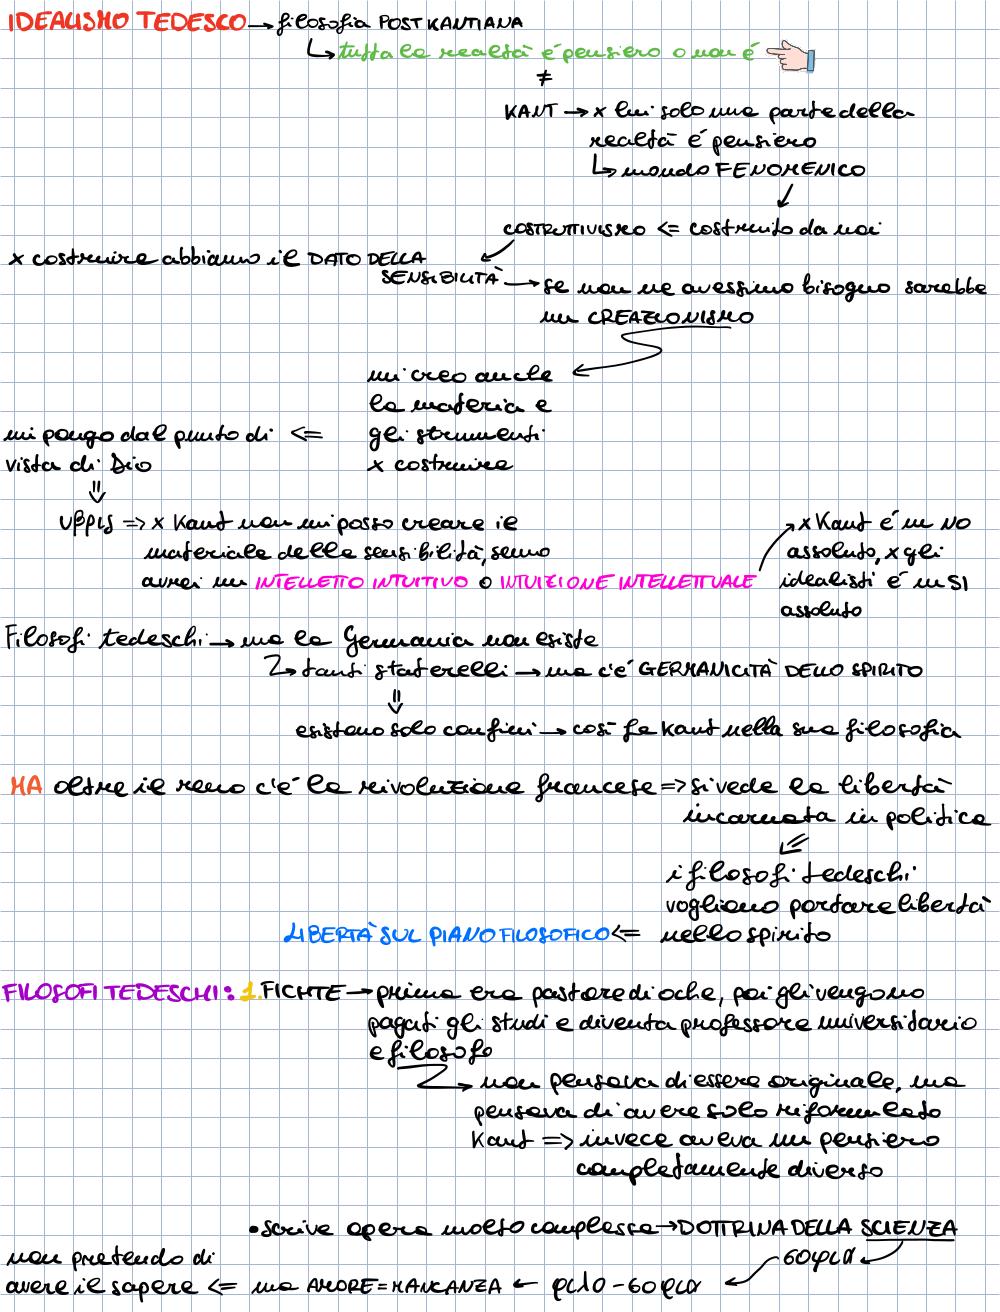 IDEALISMO TEDESCO → filosofia POST KANTIANA
↳ tutta la realtà é pensiero o non é
≠
KANT → x lui solo una parte della
realtà é pensiero
↳ mondo FENOMENICO
COSTRUTTIVISMO <= costruito da noi
x costruire abbiamo il DATO DELLA
SENSIBILITÀ → se non ne avessimo bisogno sarebbe
un CREAZIONISMO
mi creo anche
la materia e
mi pongo dal punto di <= gli strumenti
vista di Dio x costruire
υβρις => x Kant non mi posso creare il
materiale della sensibilità, senno
avrei un INTELLETTO INTUITIVO o INTUIZIONE INTELLETTUALE
x Kant é un NO
assoluto, x gli
idealisti é un SI
assoluto
Filosofi tedeschi → ma la Germania non esiste
↳ tanti staterelli → ma c'é GERMANICITÀ DELLO SPIRITO
esistono solo confini → così fa Kant nella sua filosofia
MA oltre il reno c'é la rivoluzione francese => si vede la libertà
incarnata in politica
i filosofi tedeschi
vogliono portare libertà
LIBERTÀ SUL PIANO FILOSOFICO <= nello spirito
FILOSOFI TEDESCHI: 1. FICHTE → prima era pastore di oche, poi gli vengono
pagati gli studi e diventa professore universitario
e filosofo
→ non pensava di essere originale, ma
pensava di avere solo riformulato
Kant => invece aveva un pensiero
completamente diverso
• scrive opera molto complessa → DOTTRINA DELLA SCIENZA
non pretendo di σοφια
avere il sapere <= ma AMORE = MANCANZA ← φιλο - σοφια